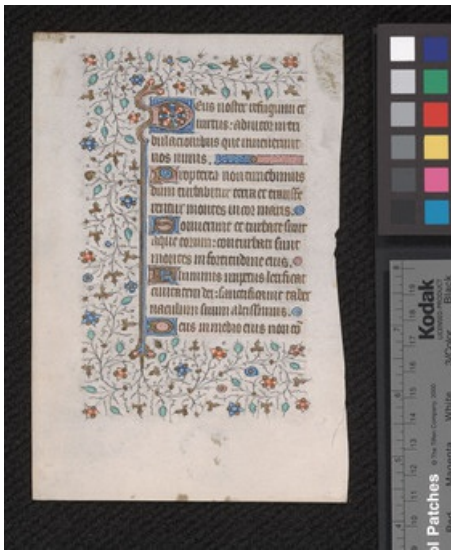 Deus noster refugium et
virtus: adiutor in tri
bulacionibus que invenerunt
nos nimis.
Propterea non timebimus
dum turbabitur terra et transfe
rentur montes in cor maris.
Sonuerunt et turbate sunt
aque eorum: conturbati sunt
montes in fortitudine eius.
Fluminis impetus letificat
civitatem dei: sanctificavit taber
naculum suum altissimus.
Deus in medio eius non co
Kodak
LICENSED PRODUCT
Black
3/Color
White
Magenta
Red
© The Tiffen Company, 2000
ol Patches